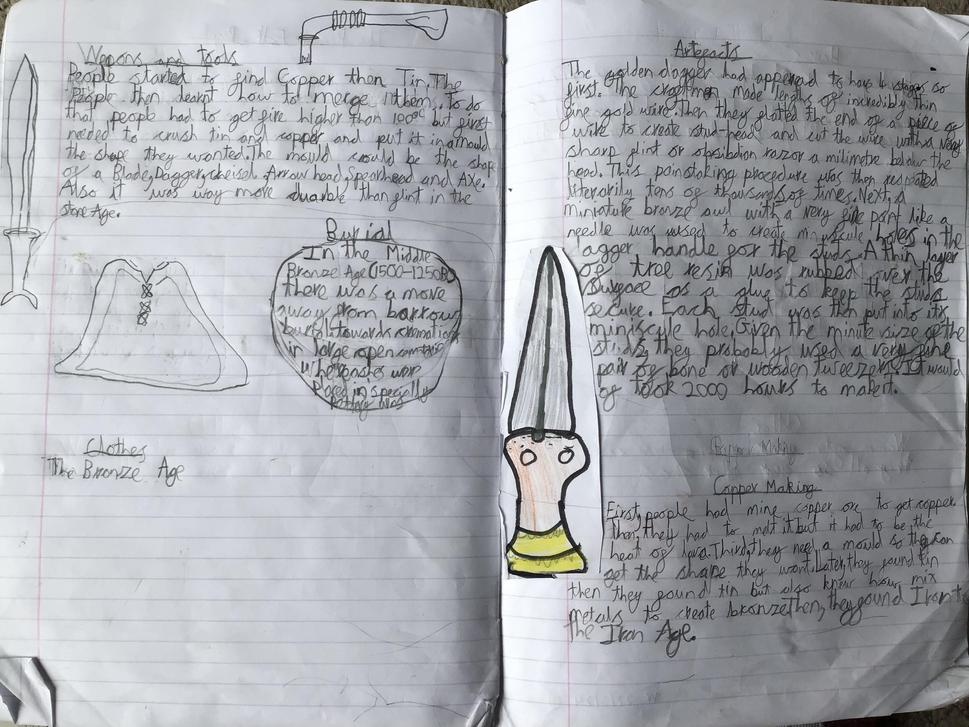 Wepons and tools
People started to find Copper then Tin. The
People then learnt how to merge them. To do
that people had to get fire higher than 1000c but first
needed to crush tin and copper and put it in a mould
the shape they wanted. The mould would be the shape
of a Blade, Dagger, cheisel, Arrow head, Spearhead and Axe.
Also it was way more durable than flint in the
stone Age.
Burial
In the Middle
Bronze Age (1500-1250BC)
there was a move
away from barrow
burial towards cremations
in large open
where were
placed in specially
pottery
Clothes
The Bronze Age
Artefacts
The golden dagger had appeared to have 4 stages so
first. The craftmen made lengths of incredibly thin
fine gold wire. Then they flatted the end of a piece of
wire to create stud-head and cut the wire with a very
sharp flint or obsibdian razor a milimetre below the
head. This painstaking procedure was then repeated
literarily tens of thousands of times. Next, a
miniature bronze awl with a very fine point like a
needle was used to create minuscule holes in the
dagger handle for the studs. A thin layer
of tree resin was rubbed over the
surface as a glue to keep the studs
secure. Each stud was then put into its
miniscule hole. Given the minite size of the
studs, they probobly used a very fine
pair of bone or wooden tweezers. It would
of took 2000 hours to make it.
Copper Making
Copper Making
First, people had mine copper ore to get copper.
Then, they had to melt it but it had to be the
heat of lava. Third, they need a mould so they can
get the shape they want. Later, they found tin
then they found tin but also knew how mix
metals to create bronze. Then, they found Iron
the Iron Age.